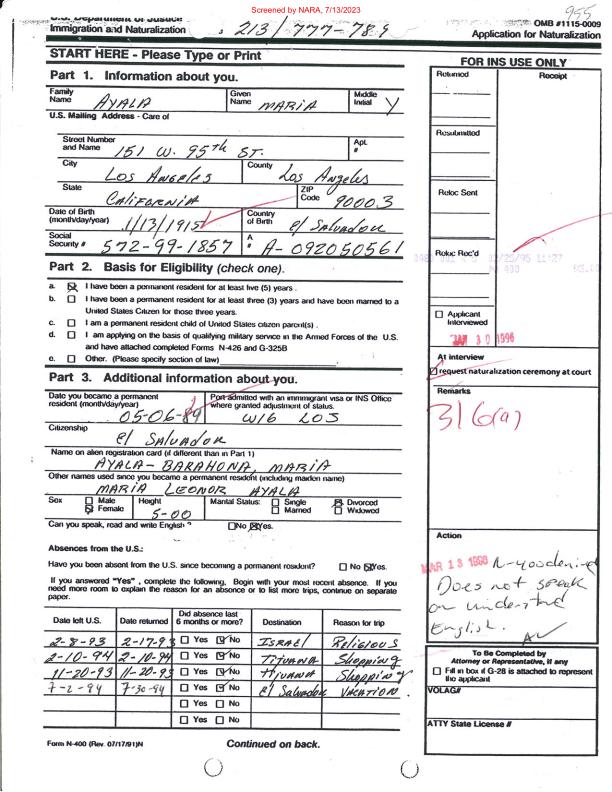 Screened by NARA, 7/13/2023
955
U.S. Department of Justice
Immigration and Naturalization
213/777-789
OMB #1115-0009
Application for Naturalization
START HERE - Please Type or Print
FOR INS USE ONLY
Part 1. Information about you.
Family Name AYALA
Given Name MARIA
Middle Initial Y
U.S. Mailing Address - Care of
Street Number and Name 151 W. 95th ST.
Apt. #
City Los Angeles
County Los Angeles
State California
ZIP Code 90003
Date of Birth (month/day/year) 1/13/1915
Country of Birth el Salvador
Social Security # 572-99-1857
A # A-092050561
Part 2. Basis for Eligibility (check one).
a. I have been a permanent resident for at least five (5) years.
b. I have been a permanent resident for at least three (3) years and have been married to a
United States Citizen for those three years.
c. I am a permanent resident child of United States citizen parent(s).
d. I am applying on the basis of qualifying military service in the Armed Forces of the U.S.
and have attached completed Forms N-426 and G-325B
e. Other. (Please specify section of law)
Part 3. Additional information about you.
Date you became a permanent resident (month/day/year) 05-06-89
Port admitted with an immigrant visa or INS Office where granted adjustment of status. W16 LOS
Citizenship el Salvador
Name on alien registration card (if different than in Part 1)
AYALA-BARAHONA, MARIA
Other names used since you became a permanent resident (including maiden name)
MARIA LEONOR AYALA
Sex Male Female
Height 5-00
Marital Status: Single Married Divorced Widowed
Can you speak, read and write English? No Yes.
Absences from the U.S.:
Have you been absent from the U.S. since becoming a permanent resident? No Yes.
If you answered "Yes", complete the following. Begin with your most recent absence. If you
need more room to explain the reason for an absence or to list more trips, continue on separate
paper.
Date left U.S. Date returned Did absence last 6 months or more? Destination Reason for trip
2-8-93 2-17-93 Yes No ISRAEL Religious
2-10-94 2-10-94 Yes No Tijuana Shopping
11-20-93 11-20-93 Yes No Tijuana Shopping
7-2-94 7-30-94 Yes No el Salvador VACATION.
Yes No
Yes No
Form N-400 (Rev. 07/17/91)N
Continued on back.
Returned
Receipt
Resubmitted
Reloc Sent
Reloc Rec'd
Applicant Interviewed
JAN 30 1996
At interview
request naturalization ceremony at court
Remarks
316(a)
Action
MAR 13 1996 N-400 denied
Does not speak
or understand
English.
To Be Completed by
Attorney or Representative, if any
Fill in box if G-28 is attached to represent
the applicant
VOLAG#
ATTY State License #